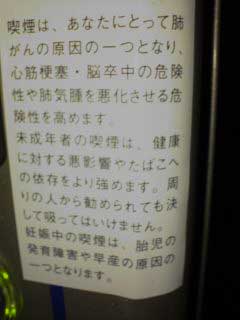 喫煙は、あなたにとって肺
がんの原因の一つとなり、
心筋梗塞・脳卒中の危険
性や肺気腫を悪化させる危
険性を高めます。
未成年者の喫煙は、健康
に対する悪影響やたばこへ
の依存をより強めます。周
りの人から勧められても決
して吸ってはいけません。
妊娠中の喫煙は、胎児の
発育障害や早産の原因の
一つとなります。